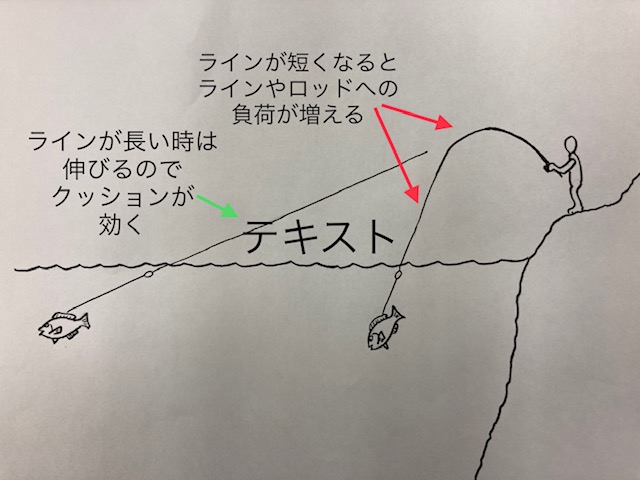 ラインが短くなると
ラインやロッドへの
負荷が増える
ラインが長い時は
伸びるので
クッションが
効く
テキスト